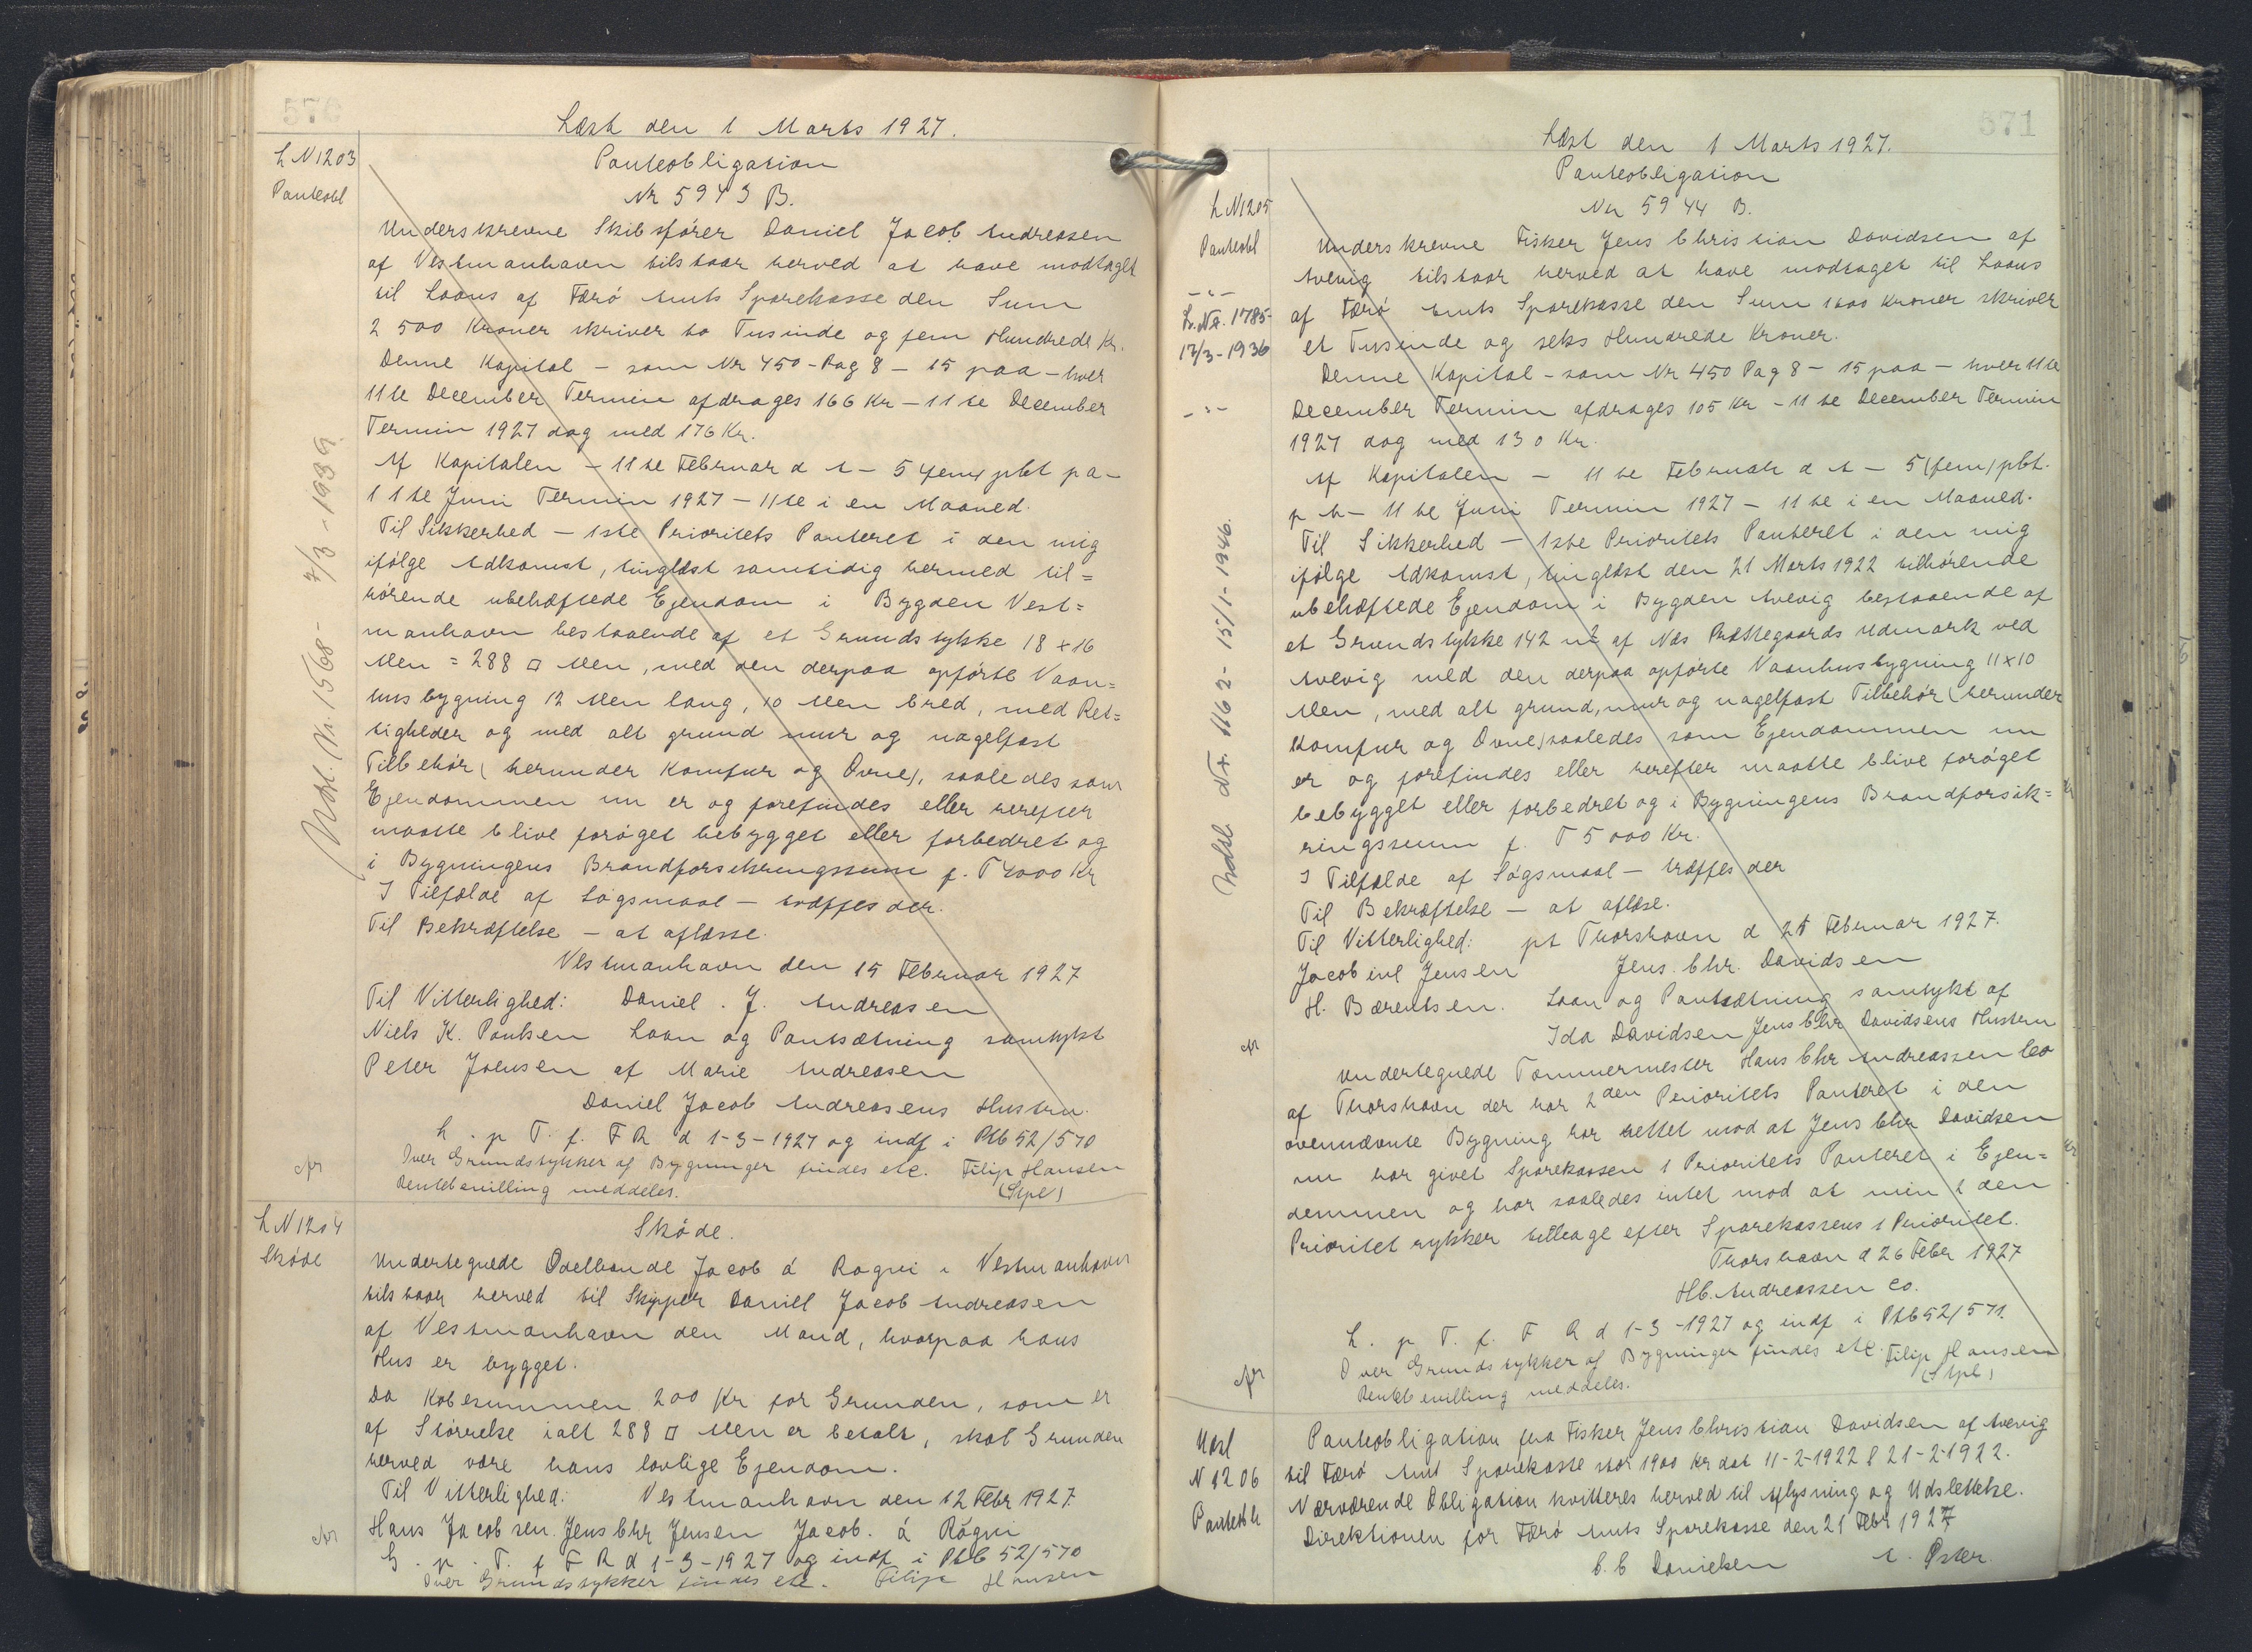 570
Læst den 1 Marts 1927.
L N 1203
Panteobl
Panteobligation
Nr 5943 B.
Underskrevne Skibsfører Daniel Jacob Andreasen
af Vestmanhavn tilstaar herved at have modtaget
til Laans af Færø Amts Sparekasse den Sum
2 500 Kroner skriver to Tusinde og fem Hundrede Kr.
Denne Kapital - som Nr 450 - Pag 8 - 15 paa - hver
11te December Termin afdrages 166 Kr - 11te December
Termin 1927 dog med 176 Kr.
Af Kapitalen - 11te Februar d A - 5 (fem) pCt pa -
11te Juni Termin 1927 - 11te i en Maaned.
Til Sikkerhed - 1ste Prioritets Panteret i den mig
ifølge Adkomst, tinglæst samtidig hermed til=
hørende ubehæftede Ejendom i Bygden Vest=
manhavn bestaaende af et Grundstykke 18 x 16
Alen = 288 □ Alen, med den derpaa opførte Vaan=
husbygning 12 Alen lang, 10 Alen bred, med Ret=
tigheder og med alt grund mur og nagelfast
Tilbehør (herunder Komfur og Ovne), saaledes som
Ejendommen nu er og forefindes eller herefter
maatte blive forøget bebygget eller forbedret og
i Bygningens Brandforsikringssum f. T 4000 Kr
I Tilfælde af Søgsmaal - træffes der.
Til Bekræftelse - at aflæsse.
Vestmanhavn den 15 Februar 1927
Til Vitterlighed: Daniel . J. Andreasen
Niels K. Poulsen Laan og Pantsætning samtykt
Peter Joensen af Marie Andreasen
Daniel Jacob Andreasens Hustru.
L . p T. f. F R d 1-3-1927 og indf i Ptb 52/570
Over Grundstykker af Bygninger findes etc. Filip Hansen
Rentebevilling meddeles. (Stpl)
Udsl. Nr. 1568 - 7/3 - 1939
L N 1204
Skøde
Skøde.
Undertegnede Odelbonde Jacob á Ragni i Vestmanhavn
tilstaar herved til Skipper Daniel Jacob Andreasen
af Vestmanhavn den Maud, hvorpaa hans
Hus er bygget.
Da Købesummen 200 Kr for Grunden, som er
af Størrelse ialt 288 □ Alen er betalt, skal Grunden
herved være hans lovlige Ejendom.
Til Vitterlighed: Vestmanhavn den 12 Febr 1927.
Hans Jacobsen. Jens Chr Jensen Jacob. á Rágni
L . p . T. f F R d 1-3-1927 og indf i Ptb 52/570
Over Grundstykker findes etc. Filip Hansen
571
Læst den 1 Marts 1927.
L N 1205
Panteobl
L. Nr. 1785-
13/3-1936
Panteobligation
Nr 5944 B.
Underskrevne Fisker Jens Christian Davidsen af
Avevig tilstaar herved at have modtaget til Laans
af Færø Amts Sparekasse den Sum 1600 Kroner skriver
et Tusinde og seks Hundrede Kroner.
Denne Kapital - som Nr 450 Pag 8 - 15 paa - hver 11te
December Termin afdrages 105 Kr - 11te December Termin
1927 dog med 130 Kr.
Af Kapitalen - 11te Februar d A - 5 (fem) pCt.
p A - 11te Juni Termin 1927 - 11te i en Maaned.
Til Sikkerhed - 1ste Prioritets Panteret i den mig
ifølge Adkomst, tinglæst den 21 Marts 1922 tilhørende
ubehæftede Ejendom i Bygden Avevig bestaaende af
et Grundstykke 142 m² af Nas Præstegaards Udmark ved
Avevig med den derpaa opførte Vaanhusbygning 11x10
Alen, med alt grund, mur og nagelfast Tilbehør (herunder
Komfur og Ovne) saaledes som Ejendommen nu
er og forefindes eller herefter maatte blive forøget
bebygget eller forbedret og i Bygningens Brandforsik=
ringssum f. T 5000 Kr.
I Tilfælde af Søgsmaal - træffes der
Til Bekræftelse - at aflæse.
Til Vitterlighed: pt Thorshavn d 21 Februar 1927.
Jacob Jensen Jens. Chr. Davidsen
H. Bærentsen. Laan og Pantsætning samtykt af
Ida Davidsen Jens Chr Davidsens Hustru
Undertegnede Tømmermester Hans Chr Andreassen Co
af Thorshavn der har 2den Prioritets Panteret i den
ovennævnte Bygning har intet mod at Jens Chr Davidsen
nu har givet Sparekassen 1 Prioritets Panteret i Ejen=
dommen og har saaledes intet mod at min 2 den
Prioritet rykker tilbage efter Sparekassens 1 Prioritet.
Thorshavn d 26 Febr 1927
HC. Andreassen Co.
L. p T. f. F R d 1-3-1927 og indf i Ptb 52/571.
Over Grundstykker af Bygninger findes etc. Filip Hansen
Rentebevilling meddeles. (Stpl)
Udsl. Nr. 1162 - 15/1-1946.
Udsl
N 1206
Pantebl
Panteobligation fra Fisker Jens Christian Davidsen af Avevig
til Færø Amt Sparekasse stor 1900 Kr dat 11-2-1922 l 21-2-1922.
Nærværende Obligation kvitteres herved til Aflysning og Udslettelse.
Direktionen for Færø Amts Sparekasse den 21 Febr 1927
C. C Danielsen A. Øster.